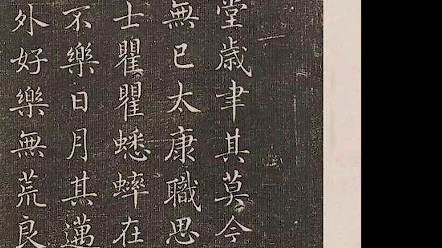 堂歳聿其莫今
無已太康職思
士瞿瞿蟋蟀在
不樂日月其邁
外好樂無荒良